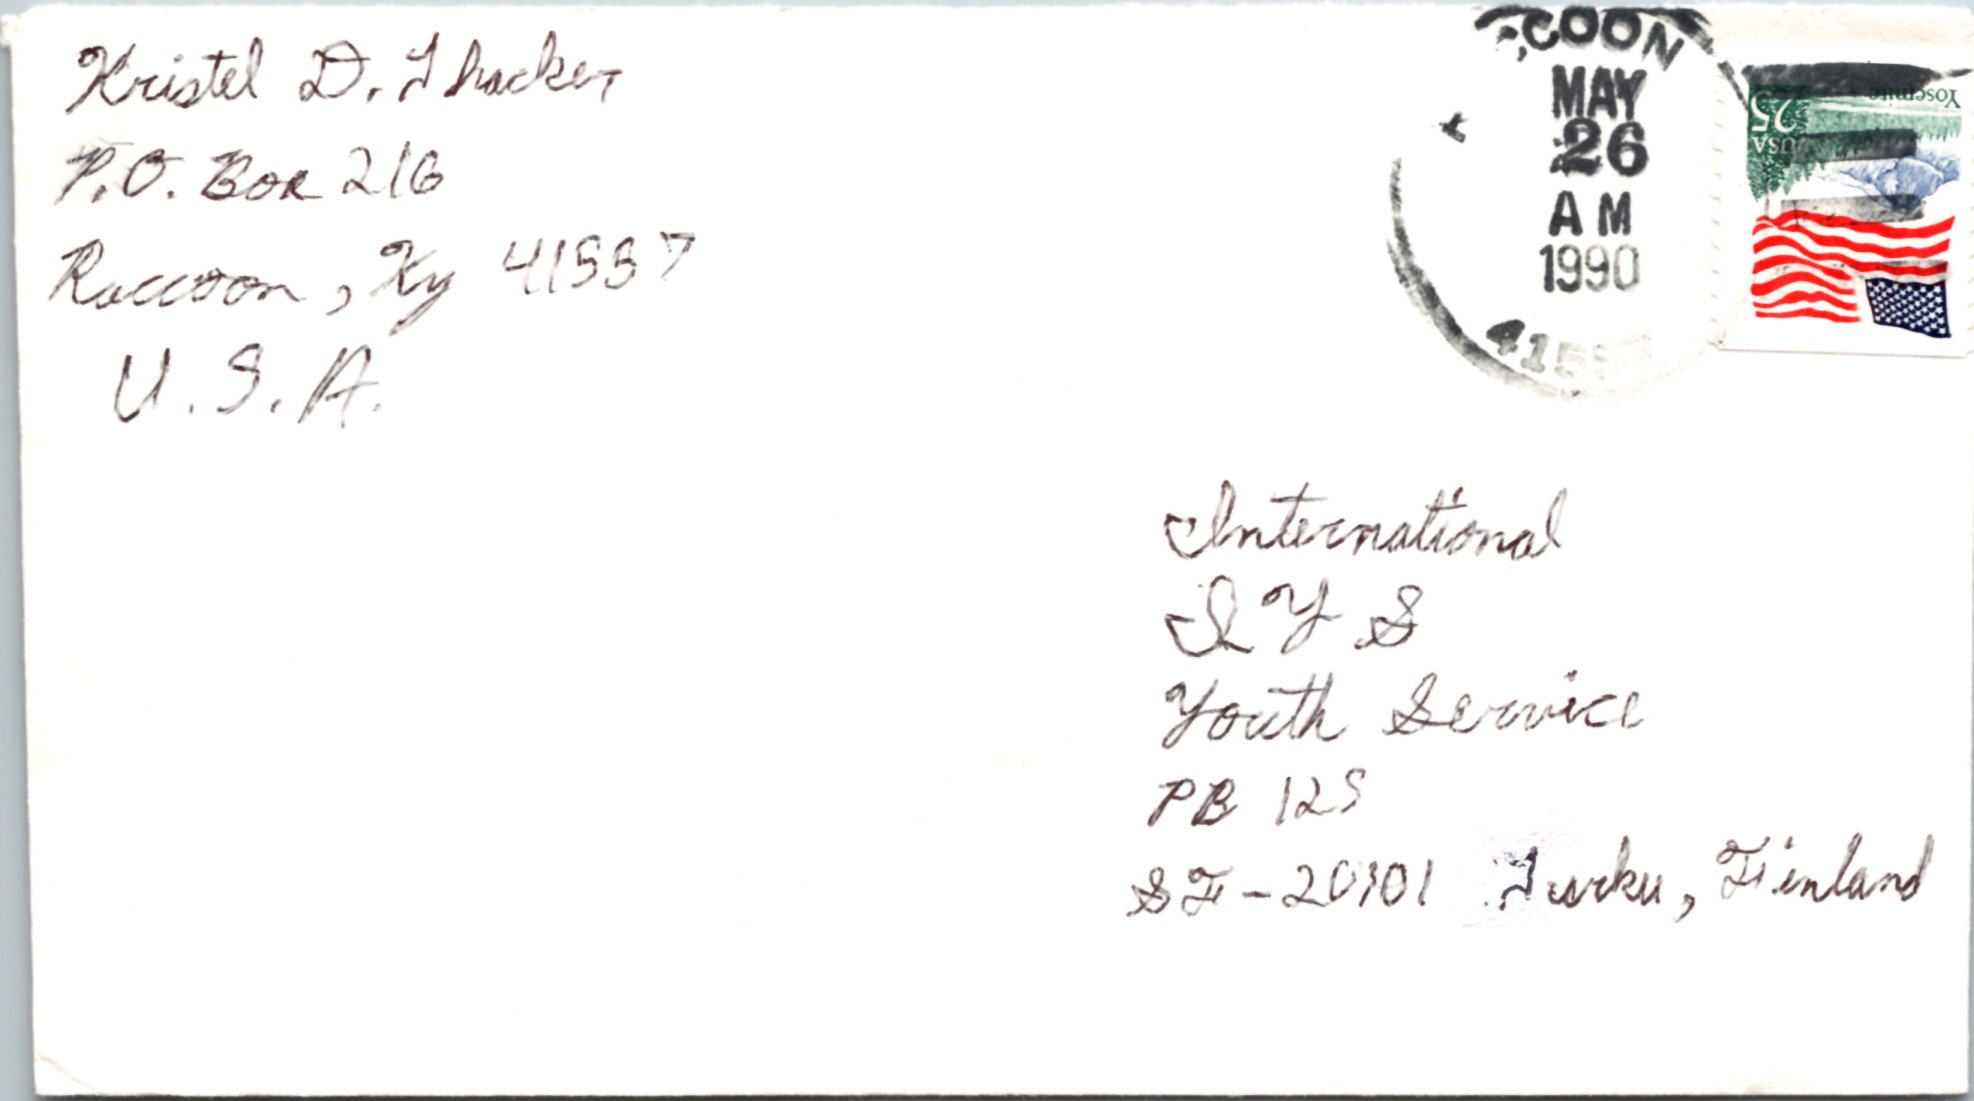 Kristel D. Thacker
P.O. Box 216
Raccoon, Ky 41557
U.S.A.
COON
MAY
26
AM
1990
4155
Yosemite
25
USA
International
I Y S
Youth Service
PB 125
SF-20101 Turku, Finland